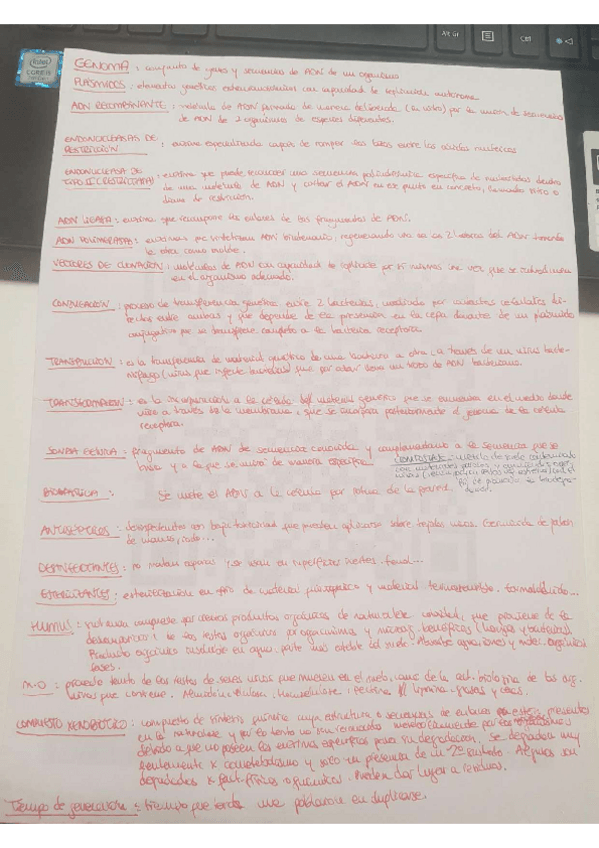 Alt Gr
Ctrl
intel
CORE i5
GENOMA : conjunto de genes y secuencias de ADN de un organismo
PLÁSMIDOS : elementos genéticos extracromosómicos con capacidad de replicación autónoma.
ADN RECOMBINANTE : molécula de ADN formada de manera deliberada (in vitro) por la unión de secuencias
de ADN de 2 organismos de especies diferentes.
ENDONUCLEASAS DE
RESTRICCIÓN : enzima especializada capaz de romper los lazos entre los ácidos nucleicos
ENDONUCLEASA DE
TIPO II (RESTRICTASA) : enzima que puede reconocer una secuencia específica de nucleótidos dentro
de una molécula de ADN y cortar el ADN en ese punto en concreto, llamado sitio o
diana de restricción.
ADN LIGASA : enzima que recompone los enlaces de los fragmentos de ADN.
ADN POLIMERASAS : enzimas que sintetizan ADN bicatenario, regenerando una de las 2 del ADN tomando
la otra como molde.
VECTORES DE CLONACIÓN : moléculas de ADN con capacidad de replicarse por sí mismas una vez que se introducen
en el organismo adecuado.
CONJUGACIÓN : proceso de transferencia genética entre 2 bacterias, mediado por contactos celulares di-
rectos entre ambas y que depende de la presencia en la cepa donante de un plásmido
conjugativo que se transfiere completo a la bacteria receptora.
TRANSDUCCIÓN : es la transferencia de material genético de una bacteria a otra a través de un virus bacte-
riófago (virus que infecta bacterias) que por azar lleva un trozo de ADN bacteriano.
TRANSFORMACIÓN : es la incorporación a la célula del material genético que se encuentra en el medio donde
vive a través de la membrana, que se incorpora posteriormente al genoma de la célula
receptora.
SONDA GÉNICA : fragmento de ADN de secuencia conocida y complementaria a la secuencia que se
busca y a la que se unirá de manera específica.
BIOBALÍSTICA : Se mete el ADN a la célula por
ANTISÉPTICOS : desinfectantes con baja toxicidad que pueden aplicarse sobre tejidos vivos. Germicida de jabón
de manos, iodo...
DESINFECTANTES : no matan esporas y se usan en superficies inertes. fenol...
ESTERILIZANTES : esterilización en frío de material quirúrgico y material termosensible. formaldehído...
HUMUS : sustancia compuesta por ciertos productos orgánicos de naturaleza coloidal, que proviene de la
descomposición de los restos orgánicos por organismos y microorg. benéficos (hongos y bacterias)
Producto orgánico insoluble en agua, parte más estable del suelo.
M.O : producto tanto de los restos de seres vivos que mueren en el suelo, como de la act. biológica de los org.
vivos que contiene.
COMPUESTO XENOBIÓTICO : compuesto de síntesis química cuya estructura o secuencias de enlace no están presentes
en la naturaleza y por lo tanto no son reconocidos
debido a que no poseen las enzimas específicas para su degradación. Se degradan muy
lentamente x cometabolismo y solo en presencia de un 2º sustrato. Algunos son
degradados x fact. físicos o químicos. Pueden dar lugar a residuos.
Tiempo de generación : tiempo que tarda una población en duplicarse.